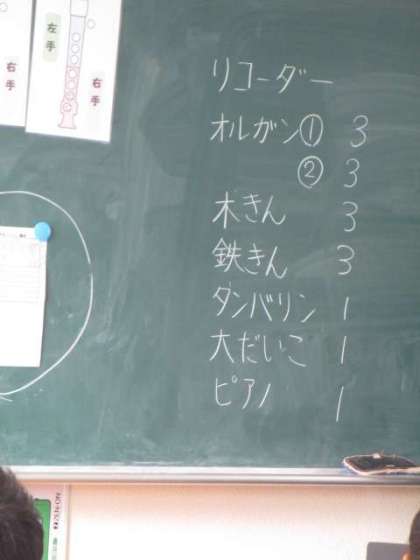 左手
右手
右手
リコーダー
オルガン① 3
② 3
木きん 3
鉄きん 3
タンバリン 1
大だいこ 1
ピアノ 1